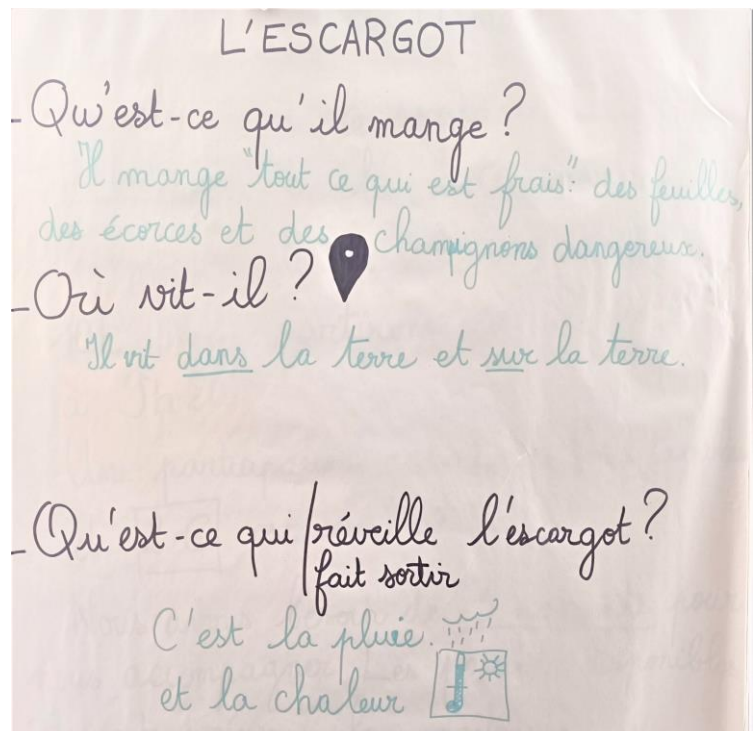 L'ESCARGOT
- Qu'est-ce qu'il mange ?
Il mange "tout ce qui est frais": des feuilles,
des écorces et des champignons dangereux.
- Où vit-il ?
Il vit dans la terre et sur la terre.
- Qu'est-ce qui réveille l'escargot ?
fait sortir
C'est la pluie.
et la chaleur